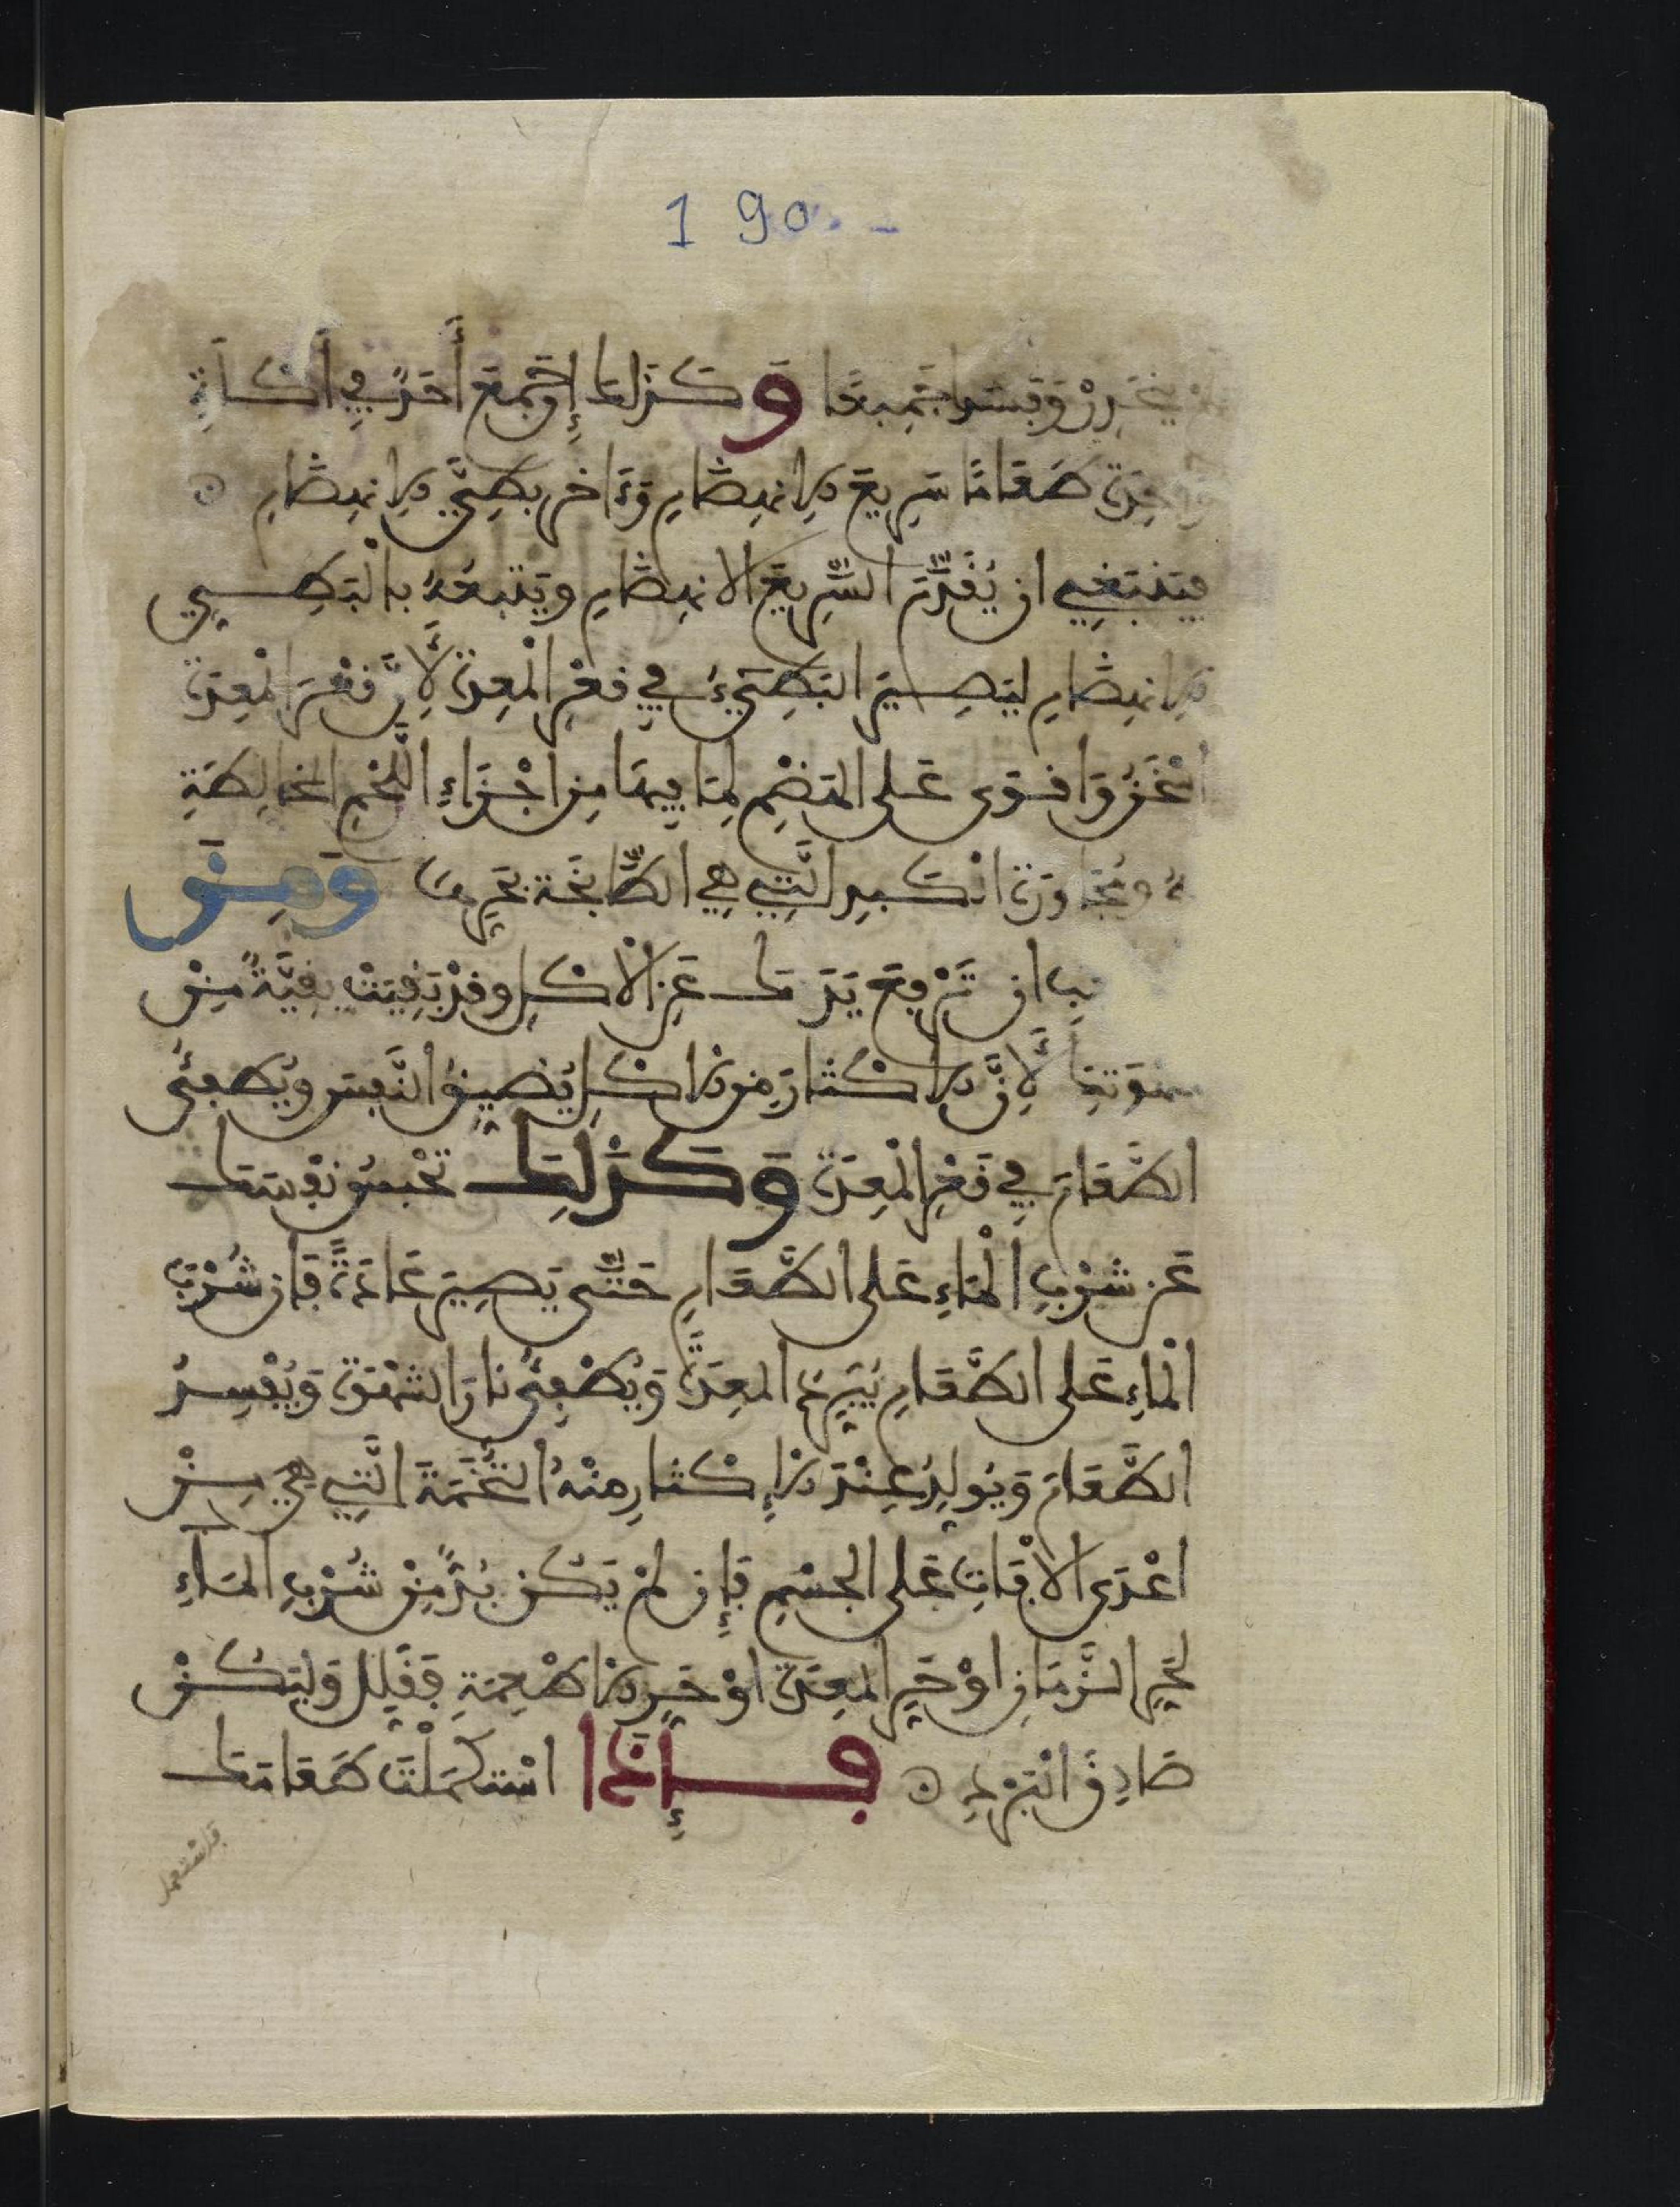 190 -
ينحدر وفسد جميعا وَكَذَلِكَ إن جَمَعَ أَحَدٌ فِي أَكْلَةٍ
واحِدَةٍ طَعَامًا سَرِيعَ الانهِضَامِ وَءَاخر بَطِيَّ الانهِضَامِ
فَيَنْبَغِي ان يُقَدِّمَ السَّرِيعَ الانهِضَامِ وَيَتْبعُهُ بالْبَطِيي
الانهِضَامِ لِيَصِيرَ البَطِيءُ فِي قعْرِ الْمعِدَةِ لأَنَّ قَعْرَ الْمعِدَةِ
اسْخَنُ وَاقْوَى عَلَى الهَضْمِ لِمَا فِيهَا مِن اجْزَاءِ اللَّحْمِ المخالِطَةِ
لهُ ومُجَاوَرَةِ الكَبِدِ الَّتِي هِيَ الطَّابخَة بِحَرِّهَا وَمِنَ
ان تَرْفَعَ يَدَكَ عَنِ الْأَكْلِ وقَدْ بَقِيَتْ بَقِيَّةٌ مِنْ
شهوتها لأَنَّ الاكْثَارَ مِنَ الاكْلِ يُضيِقُ النَّفَسَ وَيُطفِئُ
الطَّعَامَ فِي قَعْرِ الْمعِدَةِ وَكَذَلِكَ تَحْبسُ نَفْسَكَ
عَن شُرْبِ الْمَاءِ عَلَى الطَّعَامِ حَتَّى يَصِيرَ عَادَةً فَإن شُرْبَ
الْمَاءِ عَلَى الطَّعَامِ يُبَرِدُ المعِدَةَ وَيُطْفِئُ نَارَ الشَّهْوَةِ وَيُفْسِدُ
الطَّعَامَ وَيُوَلِدُ عِنْدَ الإِكْثَارِ مِنْهُ التُّخَمَةَ الَّتِي هِيَ مِنْ
اعْدَى الافَاتِ عَلَى الجِسْمِ فَإِن لَمْ يَكُنْ بُدٌّ مِنْ شُرْبِ المَاءِ
لحَرِّ الزَّمَانِ اوْ حَرِّ المعِدَةِ اوْ حَرِّ الاطْعِمَةِ فَقَلِل وَلْيَكُنْ
صَادِقَ الْبَرْدِ فَإِذَا اسْتكْمَلْتَ طَعَامَكَ
فاستعمل